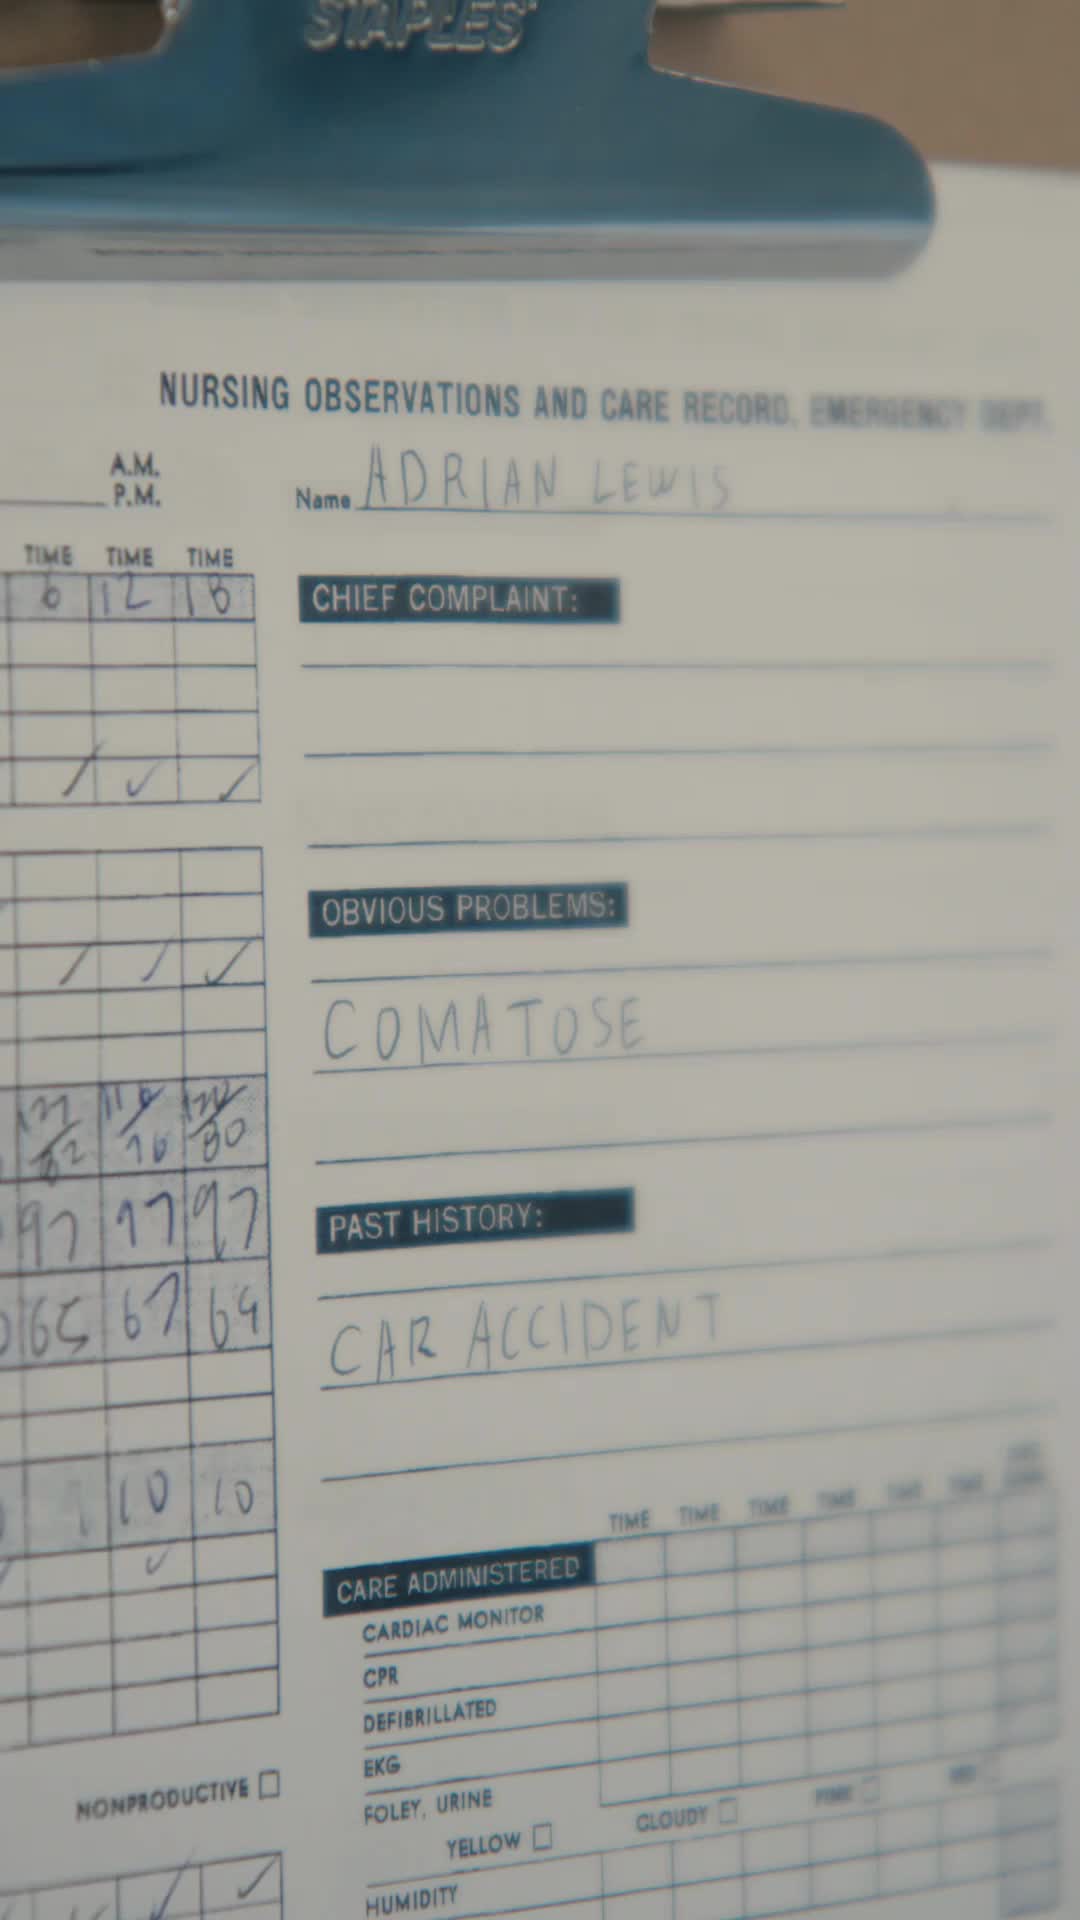 STAPLES
NURSING OBSERVATIONS AND CARE RECORD, EMERGENCY DEPT.
A.M.
P.M.
Name ADRIAN LEWIS
TIME TIME TIME
6 12 18
CHIEF COMPLAINT:
OBVIOUS PROBLEMS:
COMATOSE
76 80
PAST HISTORY:
97 97 97
CAR ACCIDENT
65 67 64
10 10
TIME TIME TIME TIME TIME TIME
CARE ADMINISTERED
CARDIAC MONITOR
CPR
DEFIBRILLATED
EKG
FOLEY, URINE
NONPRODUCTIVE
YELLOW CLOUDY PINK RED
HUMIDITY